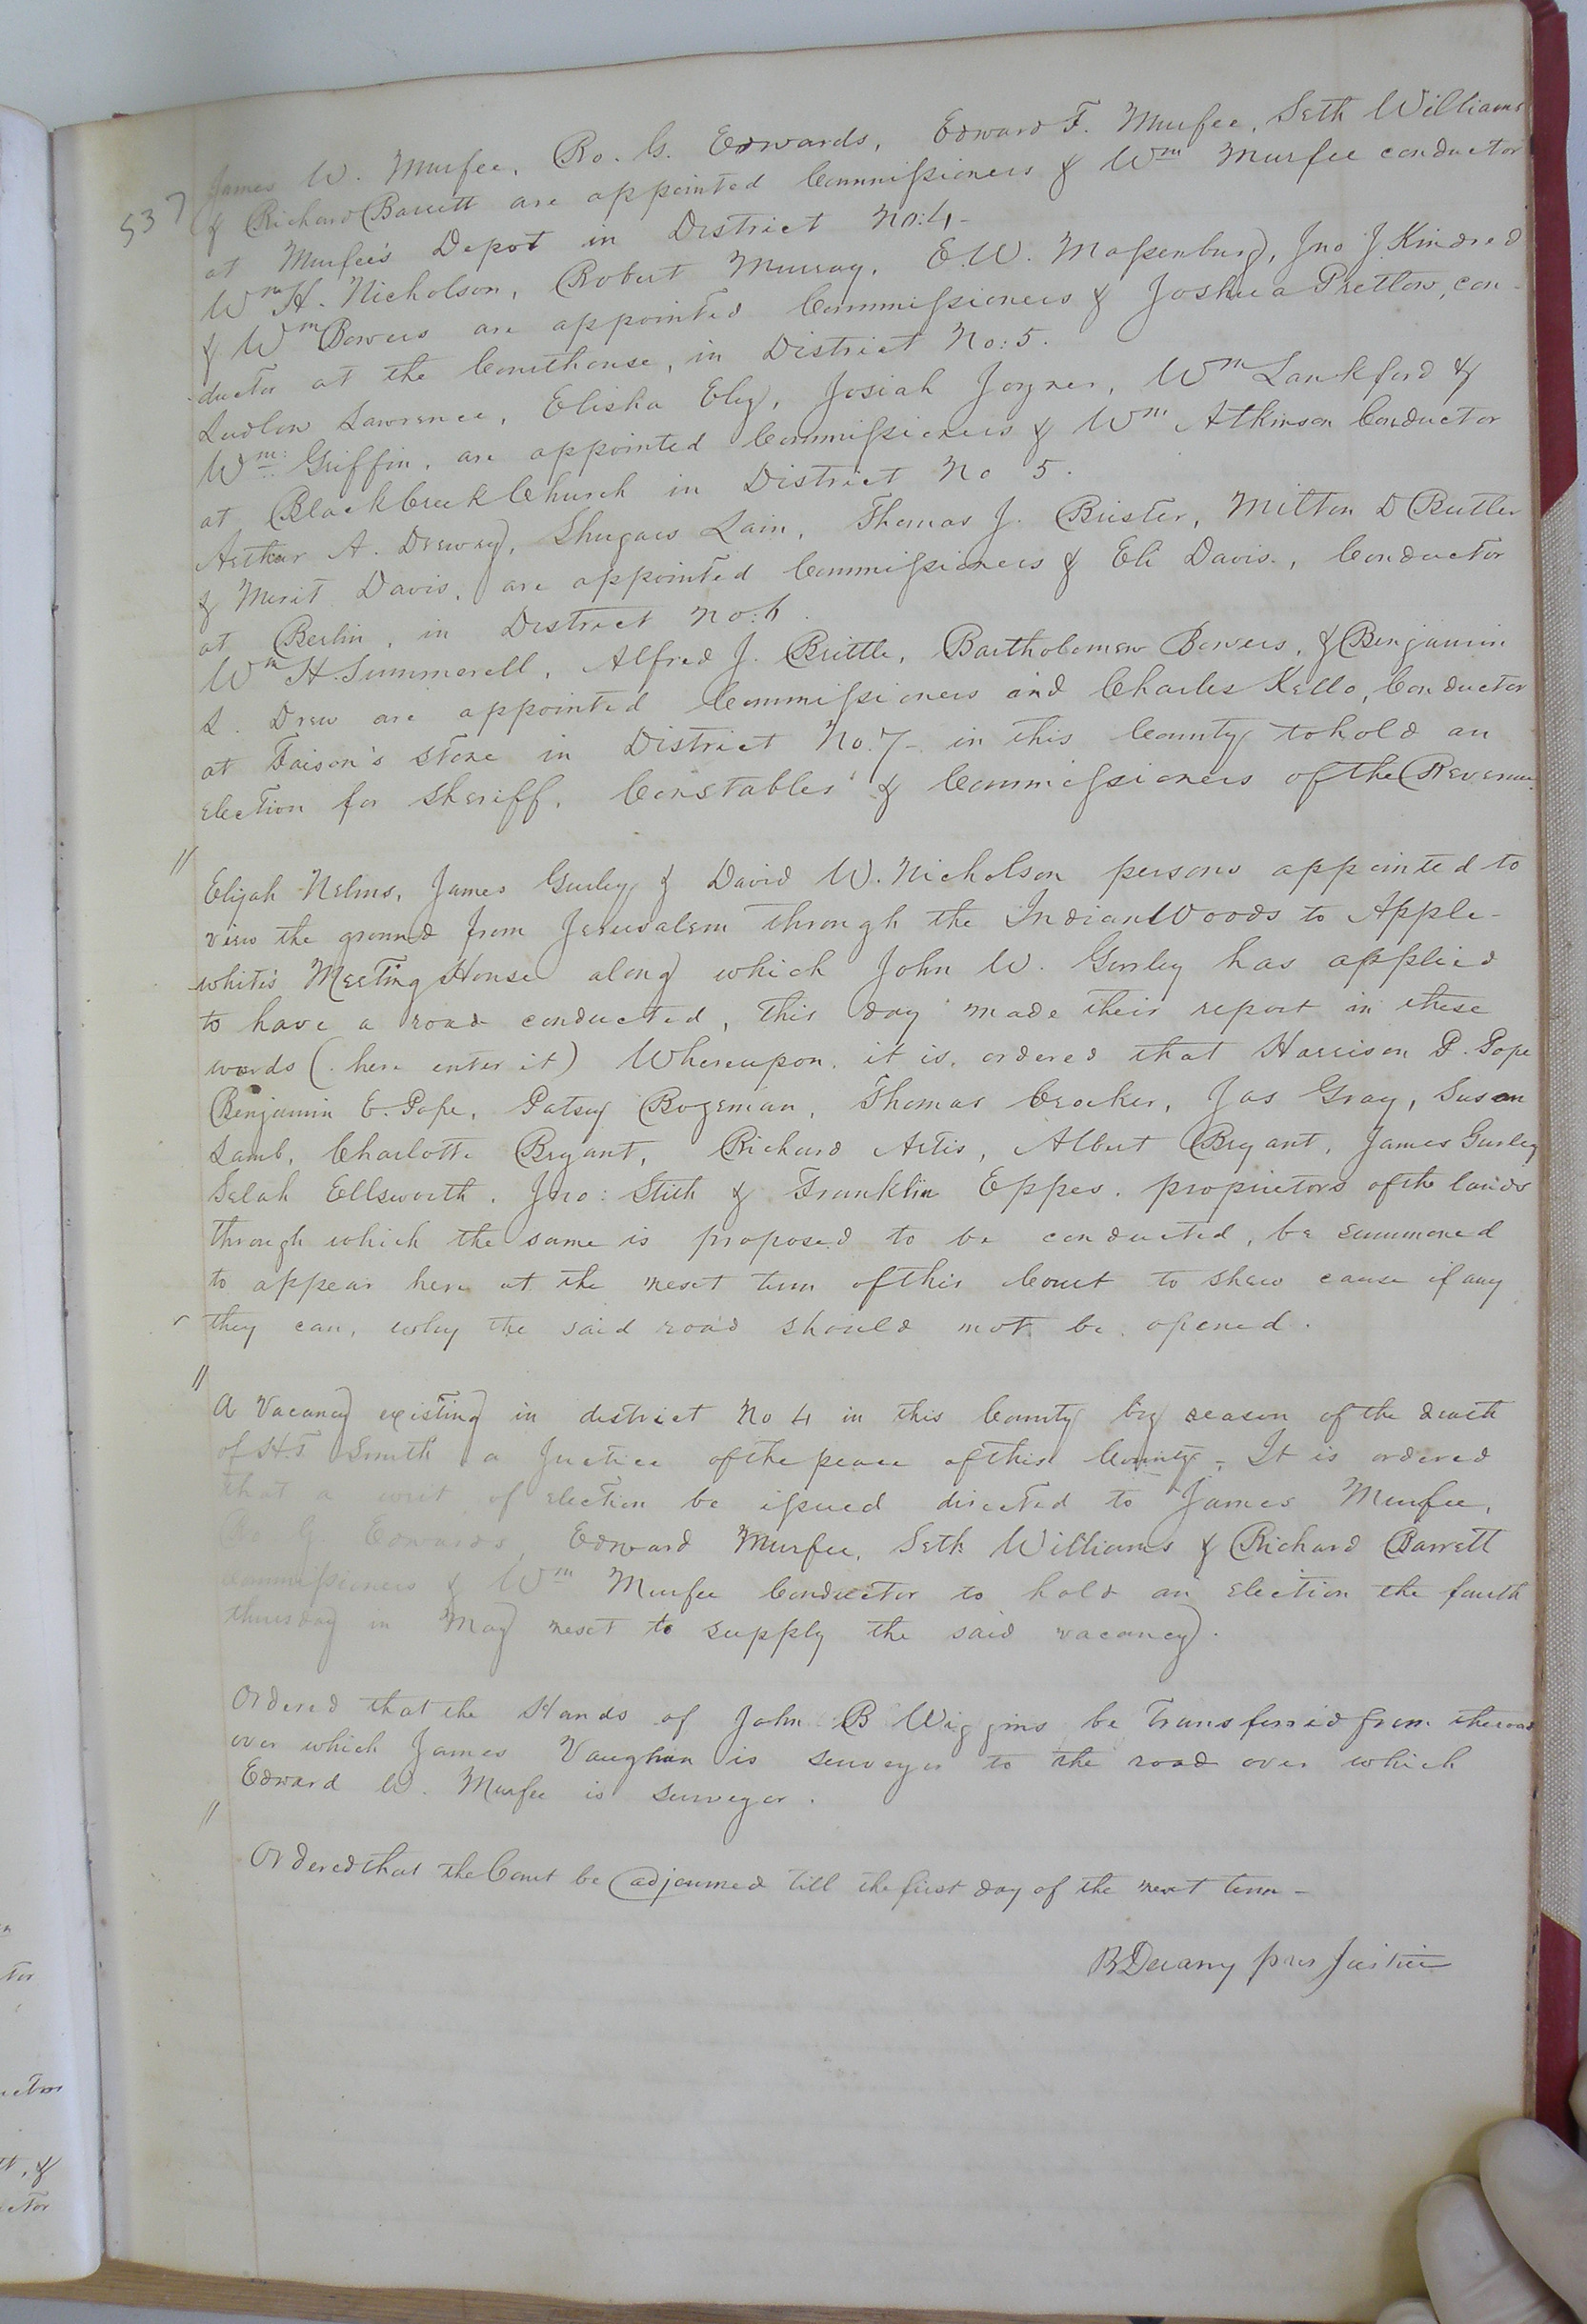 537
James W. Murfee, Ro. G. Edwards, Edward F. Murfee, Seth Williams
& Richard Barrett are appointed Commissioners & Wm Murfee conductor
at Murfee's Depot in District No: 4 -
Wm H. Nicholson, Robert Murray, E. W. Massenburg, Jno J. Kindred
& Wm Bowers are appointed Commissioners & Joshua Pretlow, con-
ductor at the Courthouse, in District No: 5.
Ludlow Lawrence, Elisha Eley, Josiah Joyner, Wm Lankford &
Wm: Griffin, are appointed Commissioners & Wm Atkinson Conductor
at Black Creek Church in District No 5.
Arthur A. Drewry, Shugars Lain, Thomas J. Brister, Milton D Butler
& Merit Davis, are appointed Commissioners & Eli Davis, Conductor
at Berlin, in District No: 6.
Wm H. Summerell, Alfred J. Brittle, Bartholomew Bowers, & Benjamin
L. Drew are appointed Commissioners and Charles Kello, Conductor
at Faison's store in District No. 7 - in this County to hold an
election for Sheriff, Constables & Commissioners of the Revenue.
" Elijah Nelms, James Gurley & David W. Nicholson persons appointed to
view the ground from Jerusalem through the Indian Woods to Apple-
white's Meeting House along which John W. Gurley has applied
to have a road conducted, this day made their report in these
words (here enter it) Whereupon it is ordered that Harrison P. Pope
Benjamin E. Pope, Patsey Bozeman, Thomas Crocker, Jas Gray, Susan
Lamb, Charlotte Bryant, Richard Artis, Albert Bryant, James Gurley
Selah Ellsworth, Jno: Stith & Franklin Eppes, proprietors of the lands
through which the same is proposed to be conducted, be summoned
to appear here at the next term of this Court to shew cause if any
they can, why the said road should not be opened.
" A Vacancy existing in district No 4 in this County by reason of the death
of H. T Smith a Justice of the peace of this County - It is ordered
that a writ of election be issued directed to James Murfee,
Ro G. Edwards, Edward Murfee, Seth Williams & Richard Barrett
Commissioners & Wm Murfee Conductor to hold an election the fourth
thursday in May next to supply the said vacancy.
Ordered that the Hands of John B Wiggins be Transferrid from the road
over which James Vaughan is surveyor to the road over which
Edward W. Murfee is surveyor.
"
Ordered that the Court be adjourned till the first day of the next term -
pres Justice